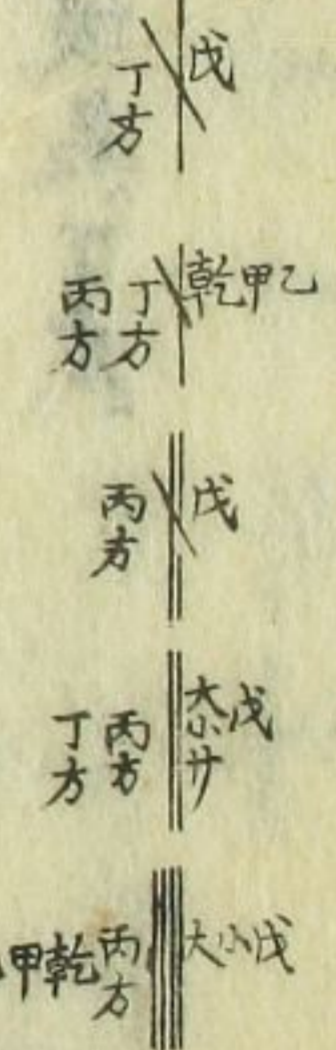 戊
丁方
乾甲乙
丁方
丙方
戊
丙方
戊
大小
廾
丙方
丁方
大小戊
丙方
乾
甲